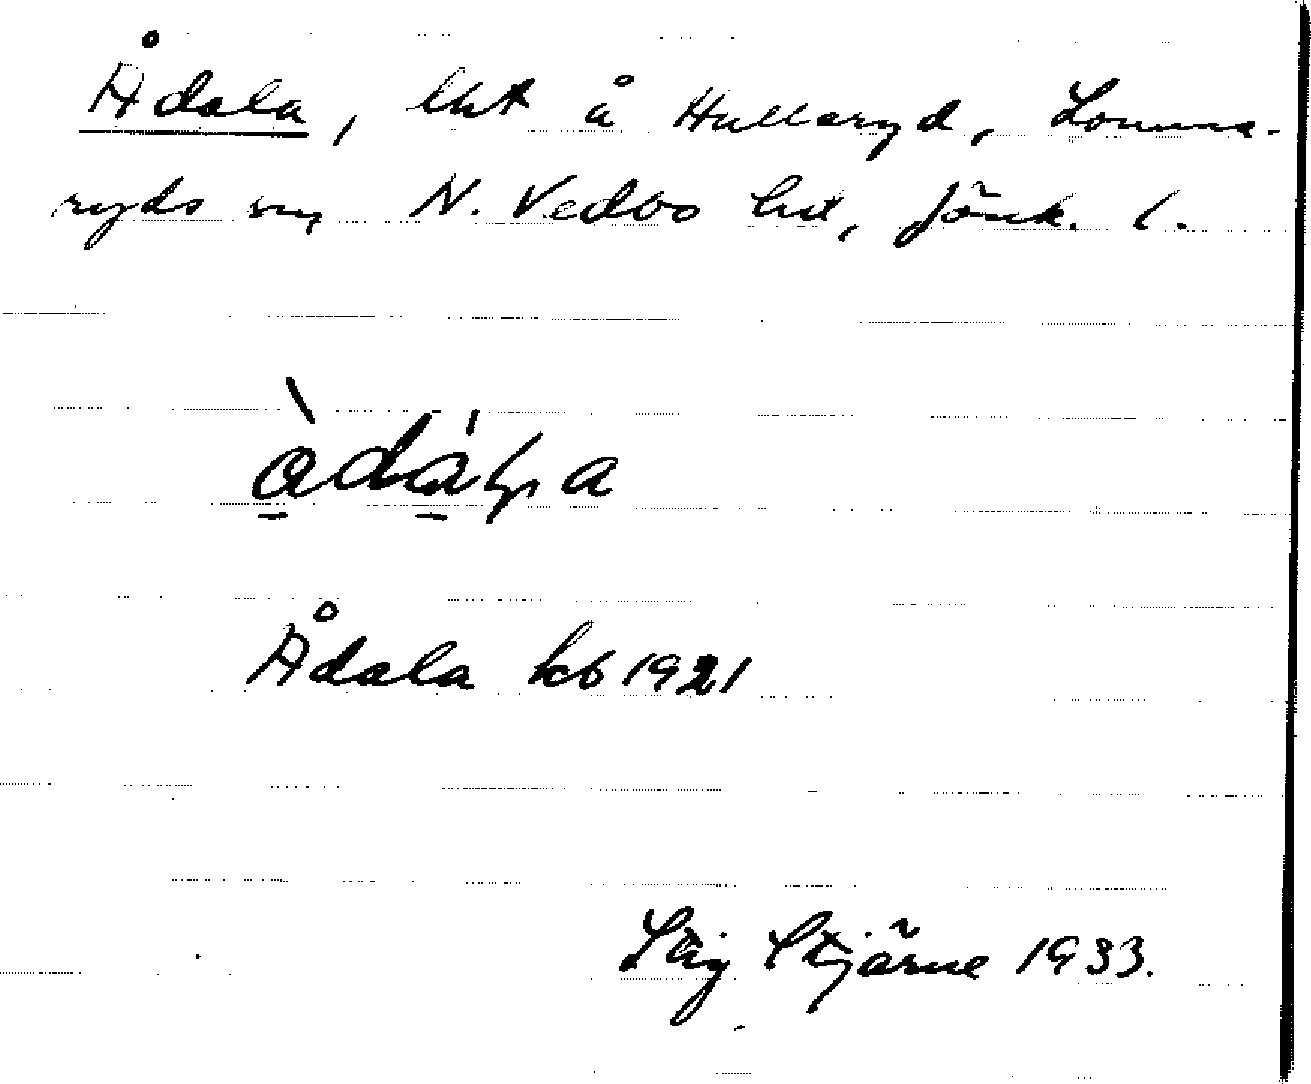 Ådala, lht å Hullaryd, Lomma-
ryds sn, N. Vedbo hd, Jönk. l.
Ådala kb 1921
Stig Stjärne 1933.